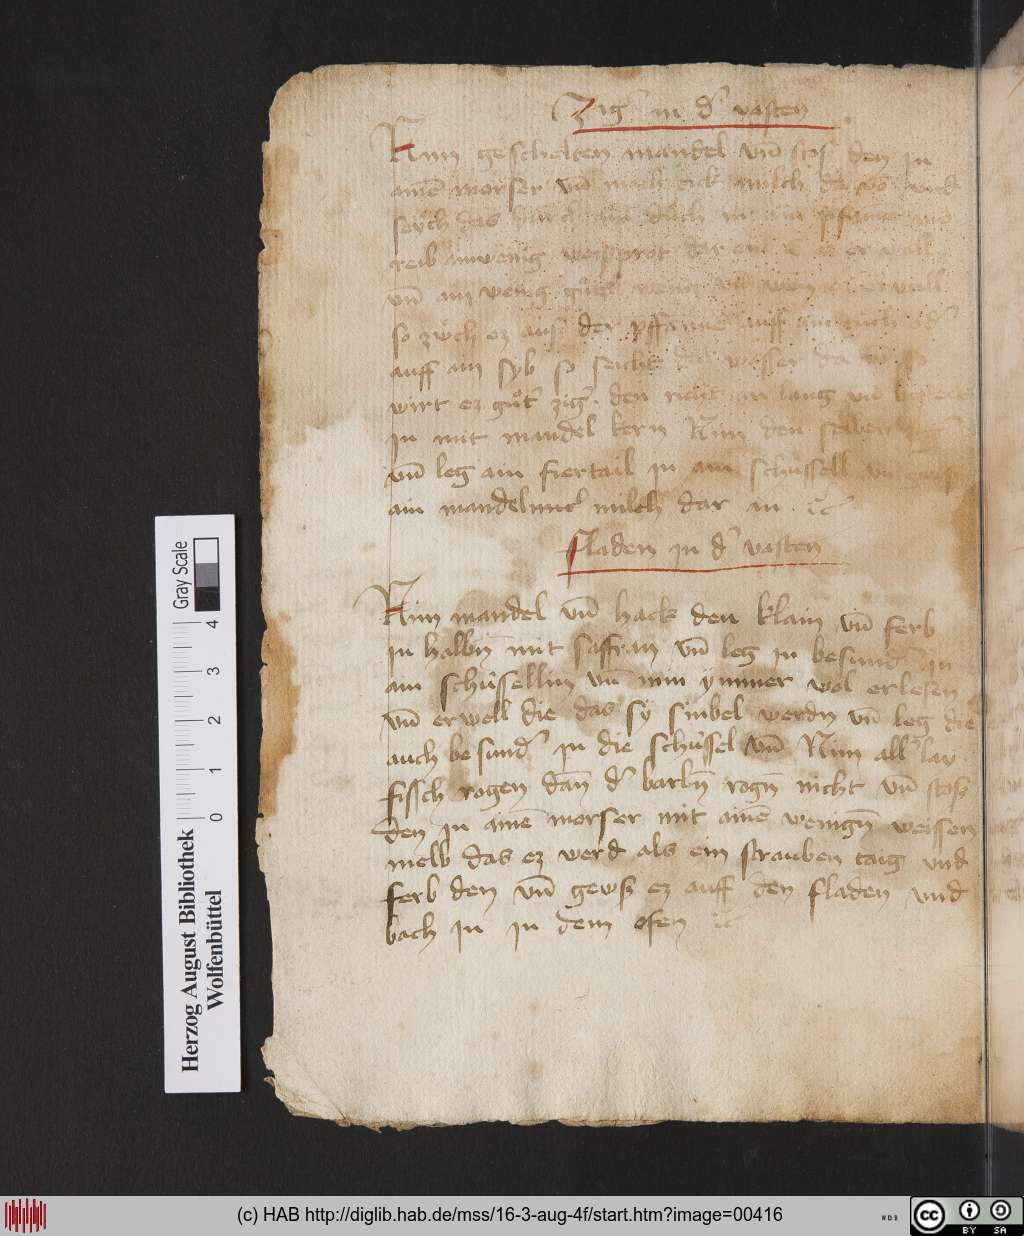 Zig in d vasten
Nim geschelten mandel vn̄ stos den in
ainē morser vn̄ mach milch da vō vnd
seych das durch ain duch in ain pfannē
reib ainwenig weysprot dar ein
vn̄ ain wenig
so zwch ez aus der pffanne auff ain
auff ain syb so seicht das wasser da
wirt ez gut zig. den richt an lang vn̄
in mit mandel kern Nim den selben
vn̄ leg ain fiertail in ain schussell
ain mandel milch dar an
fladen in d vasten
Nim mandel vn̄ hack den klain vn̄ ferb
in halbn̄ mit saffran vn̄ leg in besund in
ain schüssellin vn̄ nim ymmer wol erlesen
vn̄ erwell die das sy sinbel werdn vn̄ leg die
auch besund in die schüssel vn̄ Nim all lay
fissch rogen dan̄ d barbn̄ rogn̄ nicht vn̄ stosz
den in ainē morser mit ainē wenign̄ weissen
melb das ez werd als ein strauben taig vnd
ferb den vn̄ gewsz ez auff den fladen vnd
bach in in dem ofen
Gray Scale
0 1 2 3 4
Herzog August Bibliothek
Wolfenbüttel
(c) HAB http://diglib.hab.de/mss/16-3-aug-4f/start.htm?image=00416
cc BY SA